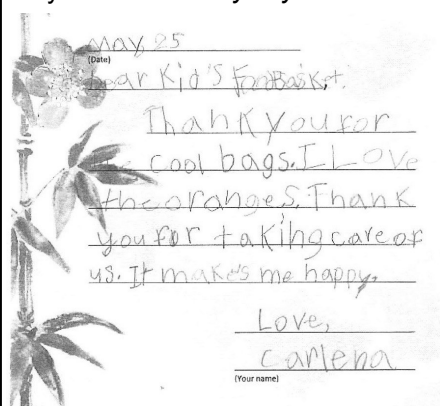 May, 25
(Date)
Dear Kid's FoodBasket.
Thank you for
the cool bags. I Love
the oranges. Thank
you for taking care of
us. It makes me happy.
Love,
Carlena
(Your name)